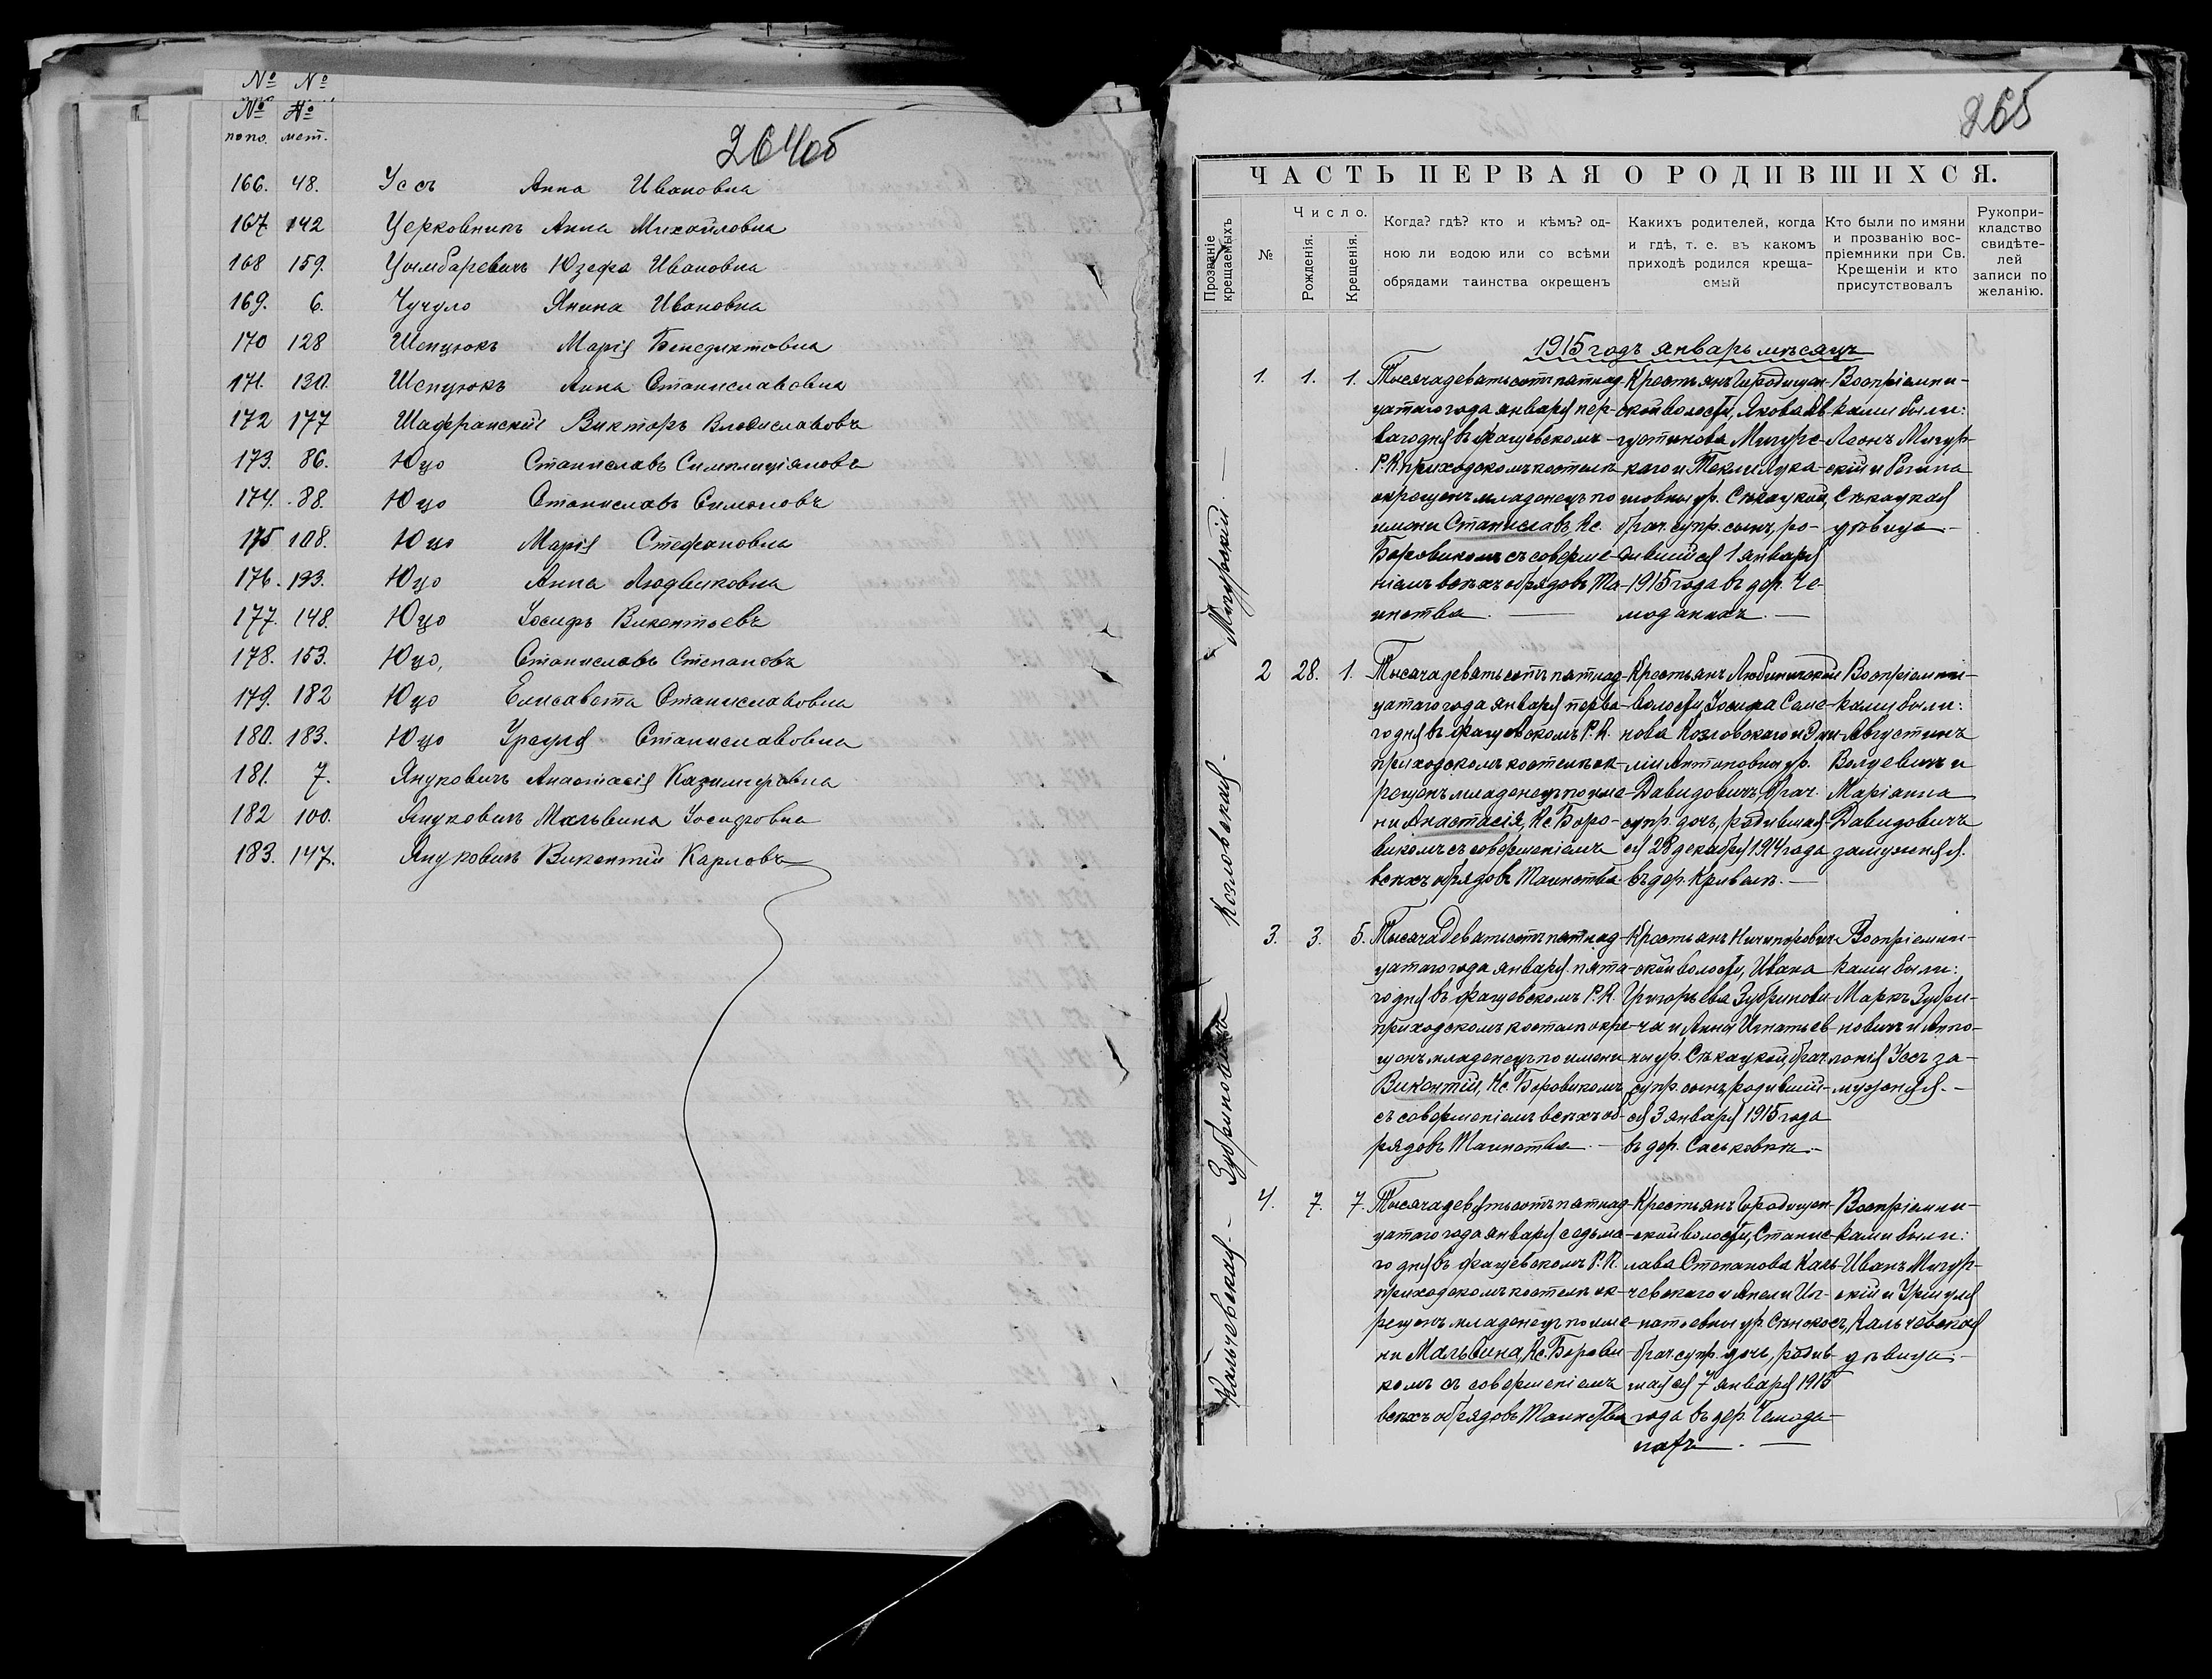 № №
№ №
по по. мет.
264об
166. 48. Уссъ Анна Ивановна
167 142 Церковникъ Анна Михайловна
168 159. Цымбаревичъ Юзефа Ивановна
169. 6. Чучуло Янина Ивановна
170 128 Шепцюкъ Марія Бенедиктовна
171. 130. Шепцюкъ Анна Станиславовна
172 177 Шафранскій Викторъ Владиславовъ
173. 86. Юцо Станиславъ Симплиціановъ
174. 88. Юцо Станиславъ Симоновъ
175 108. Юцо Марія Стефановна
176. 133. Юцо Анна Людвиковна
177. 148. Юцо Іосифъ Викентьевъ
178. 153. Юцо, Станиславъ Степановъ
179. 182 Юцо Елисавета Станиславовна
180. 183. Юцо Урсуля Станиславовна
181. 7. Януковичъ Анастасія Казимировна
182 100. Януковичъ Мальвина Іосифовна
183. 147. Януковичъ Викентій Карловъ
265
ЧАСТЬ ПЕРВАЯ О РОДИВШИХСЯ.
Прозваніе крещаемыхъ
№
Число.
Рожденія.
Крещенія.
Когда? гдѣ? кто и кѣмъ? од-
ною ли водою или со всѣми
обрядами таинства окрещенъ
Какихъ родителей, когда
и гдѣ, т. е. въ какомъ
приходѣ родился креща-
емый
Кто были по имяни
и прозванію вос-
пріемники при Св.
Крещеніи и кто
присутствовалъ
Рукопри-
кладство
свидѣте-
лей
записи по
желанію.
1915 годъ январь мѣсяцъ
Мигурскій.
1. 1. 1.
Тысяча девятьсотъ пятнад-
цатаго года января пер-
ваго дня въ Фащевскомъ
Р.К. приходскомъ костелѣ
окрещенъ младенецъ по
имени Станиславъ, Кс.
Боровикомъ съ соверше-
ніемъ всѣхъ обрядовъ Та-
инства.
Крестьянъ Городищен-
ской волости, Якова Ав-
густинова Мигурс-
каго и Текли Лука-
шовны ур. Сѣкацкой,
брач. супр. сынъ, ро-
дившійся 1 января
1915 года въ дер. Че-
моданахъ.
Воспріемни-
ками были:
Леонъ Мигур-
скій и Регина
Сѣкацкая
дѣвица
Козловская
2 28. 1.
Тысяча девятьсотъ пятнад-
цатаго года января перва-
го дня въ Фащевскомъ Р.К.
приходскомъ костелѣ ок-
рещенъ младенецъ по име-
ни Анастасія, Кс. Боро-
викомъ съ совершеніемъ
всѣхъ обрядовъ Таинства
Крестьянъ Любиничской
волости, Іосифа Семе-
нова Козловскаго и Эми-
ліи Антоновны ур.
Давидовичъ, брач.
супр. дочь, родившая-
ся 28 декабря 1914 года
въ дер. Кривелъ.
Воспріемни-
ками были:
Августинъ
Волуевичъ и
Маріанна
Давидовичъ
замужняя.
Зубриновичъ
3. 3. 5.
Тысяча девятьсотъ пятнад-
цатаго года января пята-
го дня въ Фащевскомъ Р.К.
приходскомъ костелѣ окре-
щенъ младенецъ по имени
Викентій, Кс. Боровикомъ
съ совершеніемъ всѣхъ об-
рядовъ Таинства.
Крестьянъ Ничипорович-
ской волости, Ивана
Григорьева Зубринови-
ча и Анны Игнатьев-
ны ур. Сѣкацкой, брач.
супр. сынъ, родившій-
ся 3 января 1915 года
въ дер. Саськовкѣ.
Воспріемни-
ками были:
Маркъ Зубри-
новичъ и Аппо-
лонія Уссъ за-
мужняя.
Кальчевская
4. 7. 7.
Тысяча девятьсотъ пятнад-
цатаго года января седьма-
го дня въ Фащевскомъ Р.К.
приходскомъ костелѣ ок-
рещенъ младенецъ по име-
ни Мальвина, Кс. Борови-
комъ съ совершеніемъ
всѣхъ обрядовъ Таинства
Крестьянъ Городищен-
ской волости, Станис-
лава Степанова Каль-
чевскаго и Анели Иг-
натьевны ур.
брач. супр. дочь, родив-
шаяся 7 января 1915
года въ дер. Чемода-
нахъ.
Воспріемни-
ками были:
Иванъ Мигур-
скій и Уршуля
Кальчевская
дѣвица.